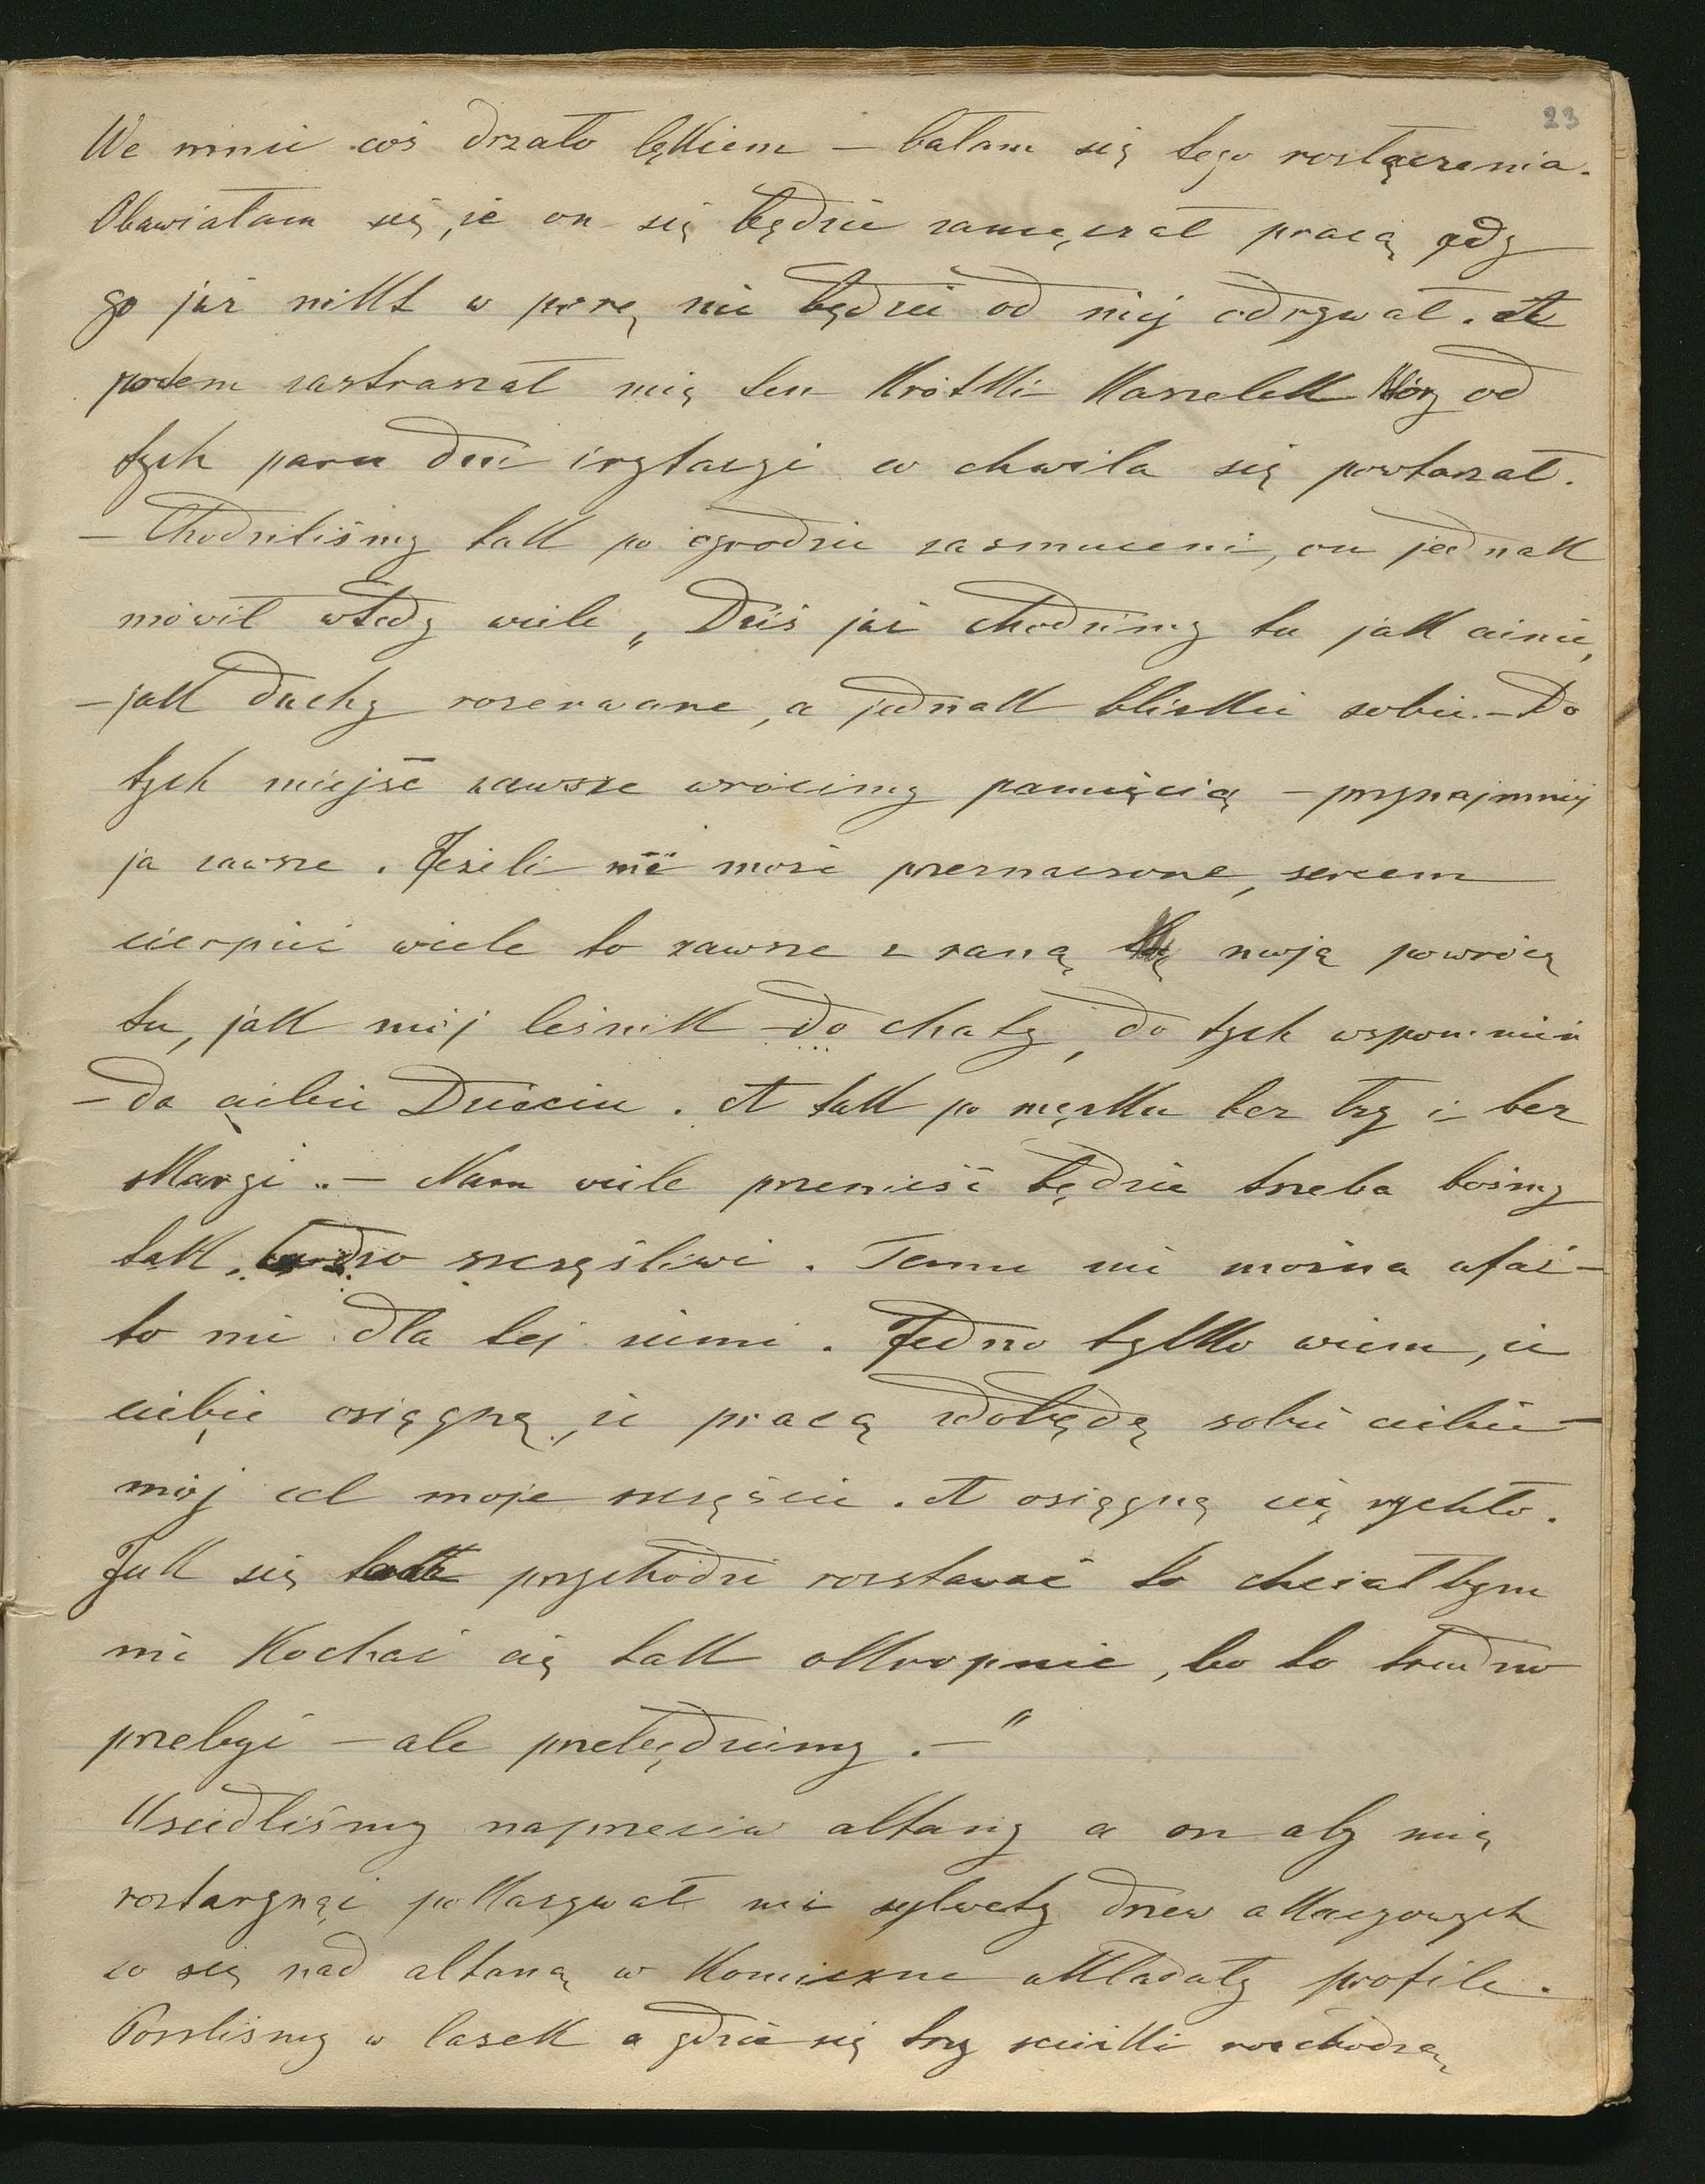 23
We mnie coś drzało lękiem – bałam się tego rozłączenia.
Obawiałam się, że on się będzie zamęczał pracą gdy
go już nikt w porę nie będzie od niej odrywał. A
potem zastraszał mię ten krótki kaszelek który od
tych paru dni irytacyi co chwila się powtarzał.
– Chodziliśmy tak po ogrodzie zasmuceni, on jednak
mówił wtedy wiele „Dziś już chodzimy tu jak cienie,
– jak duchy rozerwane, a jednak bliskie sobie. – Do
tych miejsc zawsze wrócimy pamięcią – przynajmniej
ja zawsze. Jeżeli nie może przeznaczone, sercem
cierpieć wiele to zawsze z raną moją powrócę
tu, jak mój leśnik do chaty, do tych wspomnień
– do ciebie Dziecię. A tak po męsku bez łzy i bez
skargi.. – Nam wiele przenieść będzie trzeba bośmy
tak bardzo szczęśliwi. Temu nie można ufać –
to nie dla tej ziemi. Jedno tylko wiem, że
ciebie osiągnę, że pracą zdobędę sobie ciebie –
mój cel moje szczęście. A osiągnę cię rychło.
Jak się przychodzi rozstawać to chciałbym
nie kochać cię tak okropnie, bo to trudno
przebyć – ale przebędziemy. –"
Usiedliśmy naprzeciw altany a on aby mię
roztargnąć pokazywał mi sylwety drzew akacyowych
co się nad altaną w komiczne układały profile.
Poszliśmy w lasek a gdzie się trzy ścieżki rozchodzą